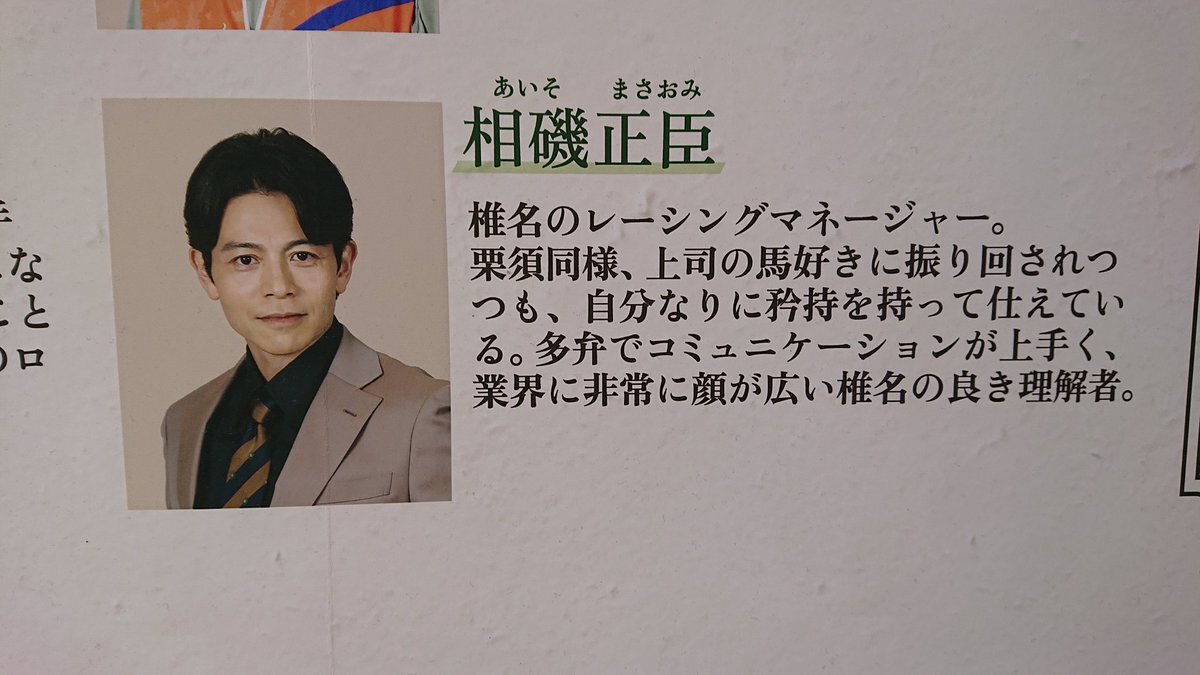 あいそ まさおみ
相磯正臣
椎名のレーシングマネージャー。
栗須同様、上司の馬好きに振り回されつ
つも、自分なりに矜持を持って仕えてい
る。多弁でコミュニケーションが上手く、
業界に非常に顔が広い椎名の良き理解者。
な
こと
のロ